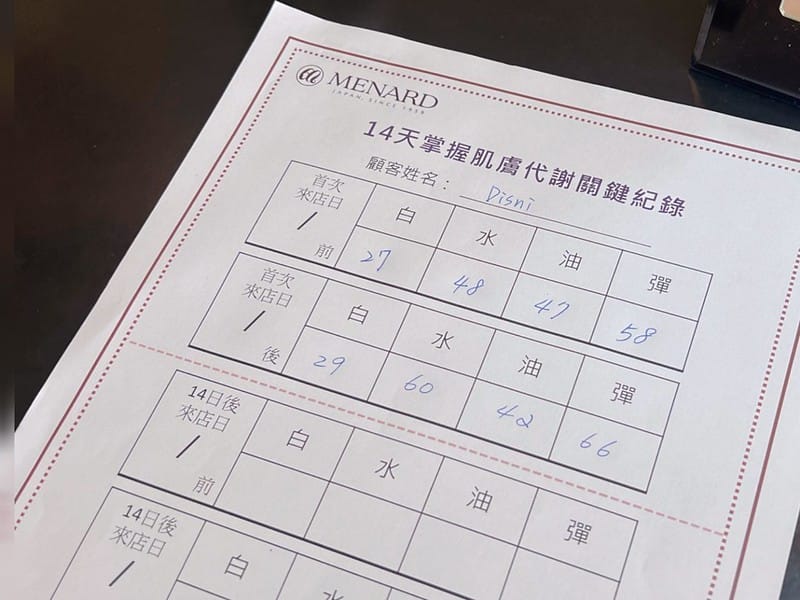 MENARD
JAPAN, SINCE 1959
14天掌握肌膚代謝關鍵紀錄
顧客姓名： Disni
首次 來店日 / 前 白 水 油 彈
27 48 47 58
首次 來店日 / 後 白 水 油 彈
29 60 42 66
14日後 來店日 / 前 白 水 油 彈
14日後 來店日 / 白 水